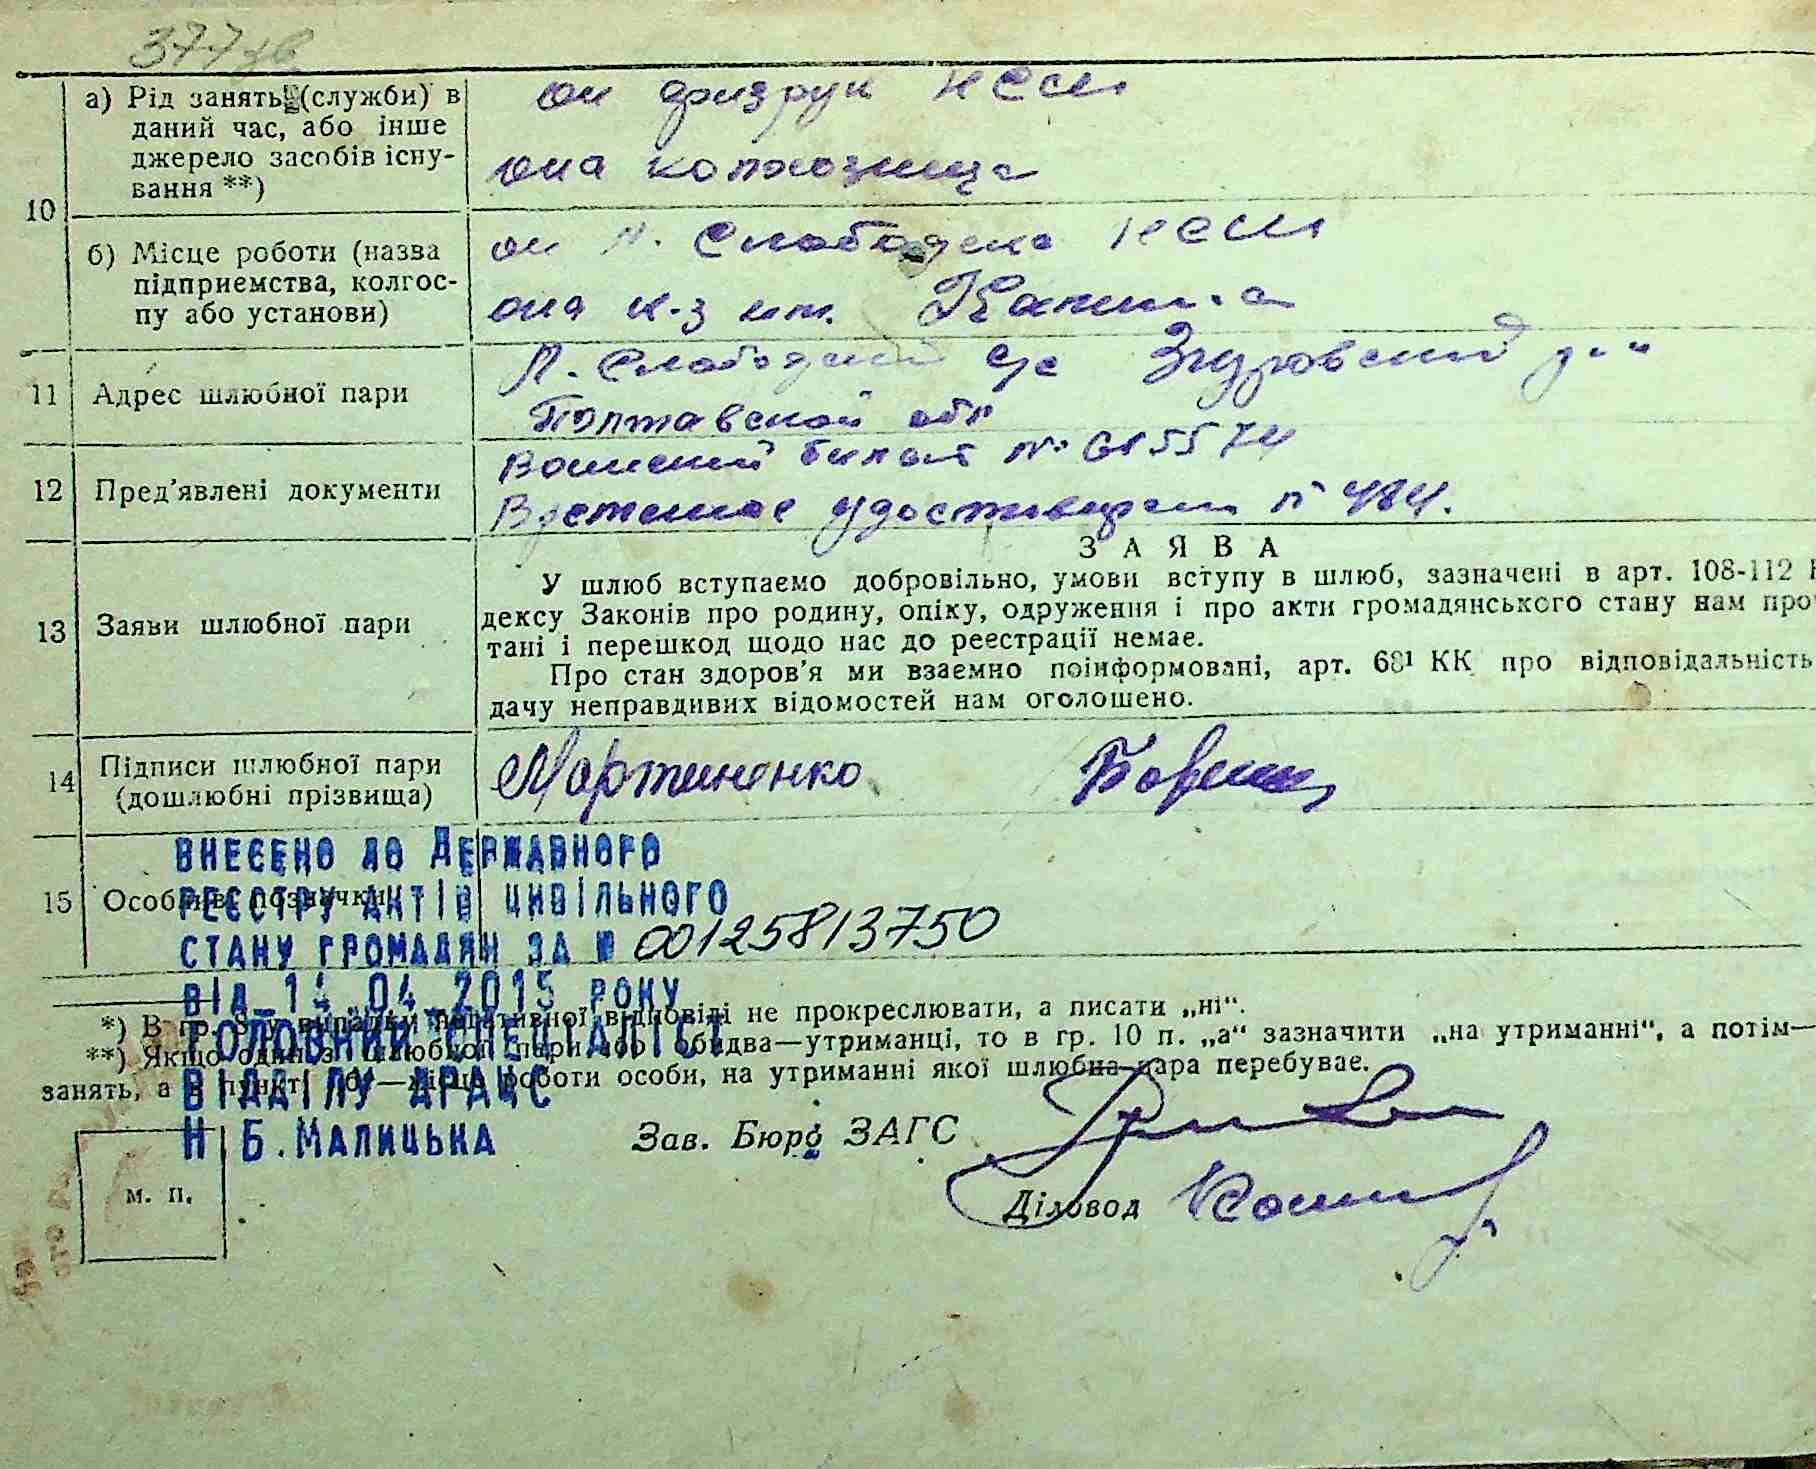 377зв
10
а) Рід занять (служби) в
даний час, або інше
джерело засобів існу-
вання **)
он физрук НСШ
она колхозница
б) Місце роботи (назва
підприємства, колгос-
пу або установи)
он Л. Слободска НСШ
она к-з им.
11
Адрес шлюбної пари
Л. Слободский с/с Згуровский р-н
Полтавской обл
12
Пред'явлені документи
Воинский билет №
Временное удостоверен № 484.
13
Заяви шлюбної пари
ЗАЯВА
У шлюб вступаємо добровільно, умови вступу в шлюб, зазначені в арт. 108-112 К
дексу Законів про родину, опіку, одруження і про акти громадянського стану нам про
тані і перешкод щодо нас до реєстрації немає.
Про стан здоров'я ми взаємно поінформовані, арт. 68¹ КК про відповідальність
дачу неправдивих відомостей нам оголошено.
14
Підписи шлюбної пари
(дошлюбні прізвища)
Мартиненко
15
Особливі позначки
ВНЕСЕНО ДО ДЕРЖАВНОГО
РЕЄСТРУ АКТІВ ЦИВІЛЬНОГО
СТАНУ ГРОМАДЯН ЗА № 00125813750
ВІД 14.04.2015 РОКУ
ГОЛОВНИЙ СПЕЦІАЛІСТ
ВІДДІЛУ ДРАЦС
Н Б.МАЛИЦЬКА
*) В гр. 8 у випадку негативної відповіді не прокреслювати, а писати „ні“.
**) Якщо один з шлюбної пари або обидва—утриманці, то в гр. 10 п. „а“ зазначити „на утриманні“, а потім—
занять, а в пункті „б“—місце роботи особи, на утриманні якої шлюбна пара перебуває.
Зав. Бюро ЗАГС
Діловод
м. п.